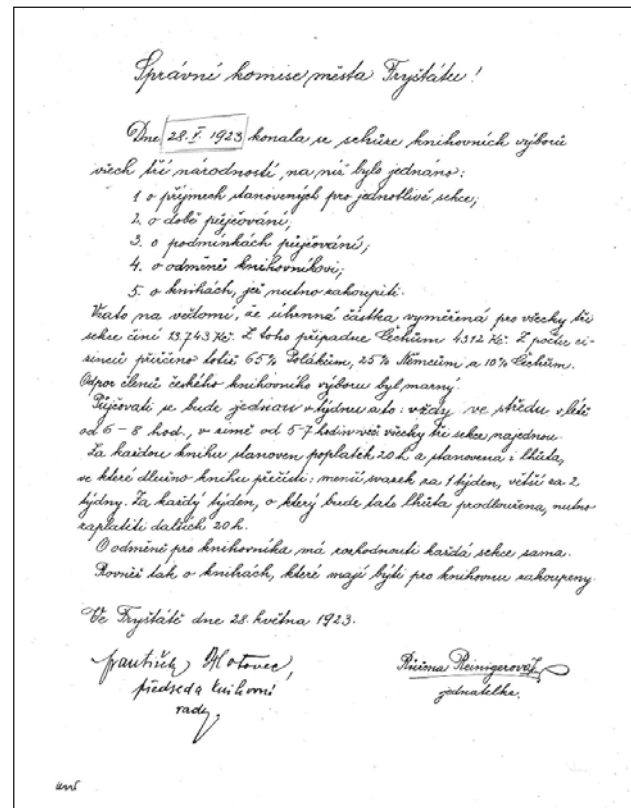 Správní komise města Fryštátu!
Dne 28.V. 1923 konala se schůze knihovních výborů
všech tří národností, na níž bylo jednáno:
1 o příjmech stanovených pro jednotlivé sekce;
2. o době půjčování;
3. o podmínkách půjčování;
4. o odměně knihovníkovi;
5. o knihách, jež nutno zakoupiti.
Vzato na vědomí, že úhrnná částka vyměřená pro všecky tři
sekce činí 13.743 Kč. Z toho připadne Čechům 4312 Kč. Z počtu ci-
zinců přičteno totiž 65% Polákům, 25% Němcům a 10% Čechům.
Odpor členů českého knihovního výboru byl marný.
Půjčovati se bude jednou v týdnu a to: vždy ve středu v létě
od 6 - 8 hod., v zimě od 5-7 hodin všecky tři sekce najednou.
Za každou knihu stanoven poplatek 20 h a stanovena i lhůta,
ve které dlužno knihu přečísti: menší svazek za 1 týden, větší za 2
týdny. Za každý týden, o který bude tato lhůta prodloužena, nutno
zaplatiti dalších 20 h.
O odměně pro knihovníka má rozhodnouti každá sekce sama.
Rovněž tak o knihách, které mají býti pro knihovnu zakoupeny.
Ve Fryštátě dne 28. května 1923.
František
předseda knihovní
rady.
Růžena Reinigerová
jednatelka.